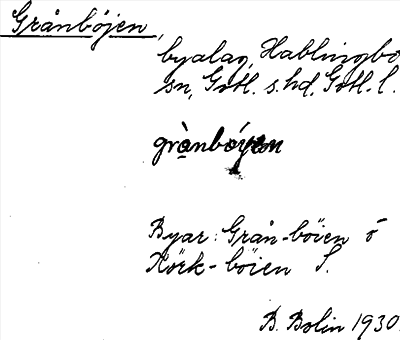 Grånböjen,
byalag, Hablingbo
sn, Gotl. s. hd, Gotl. l.
grànbóyen
Byar: Grån-böien ö
Körk-böien S.
B. Bolin 1930.